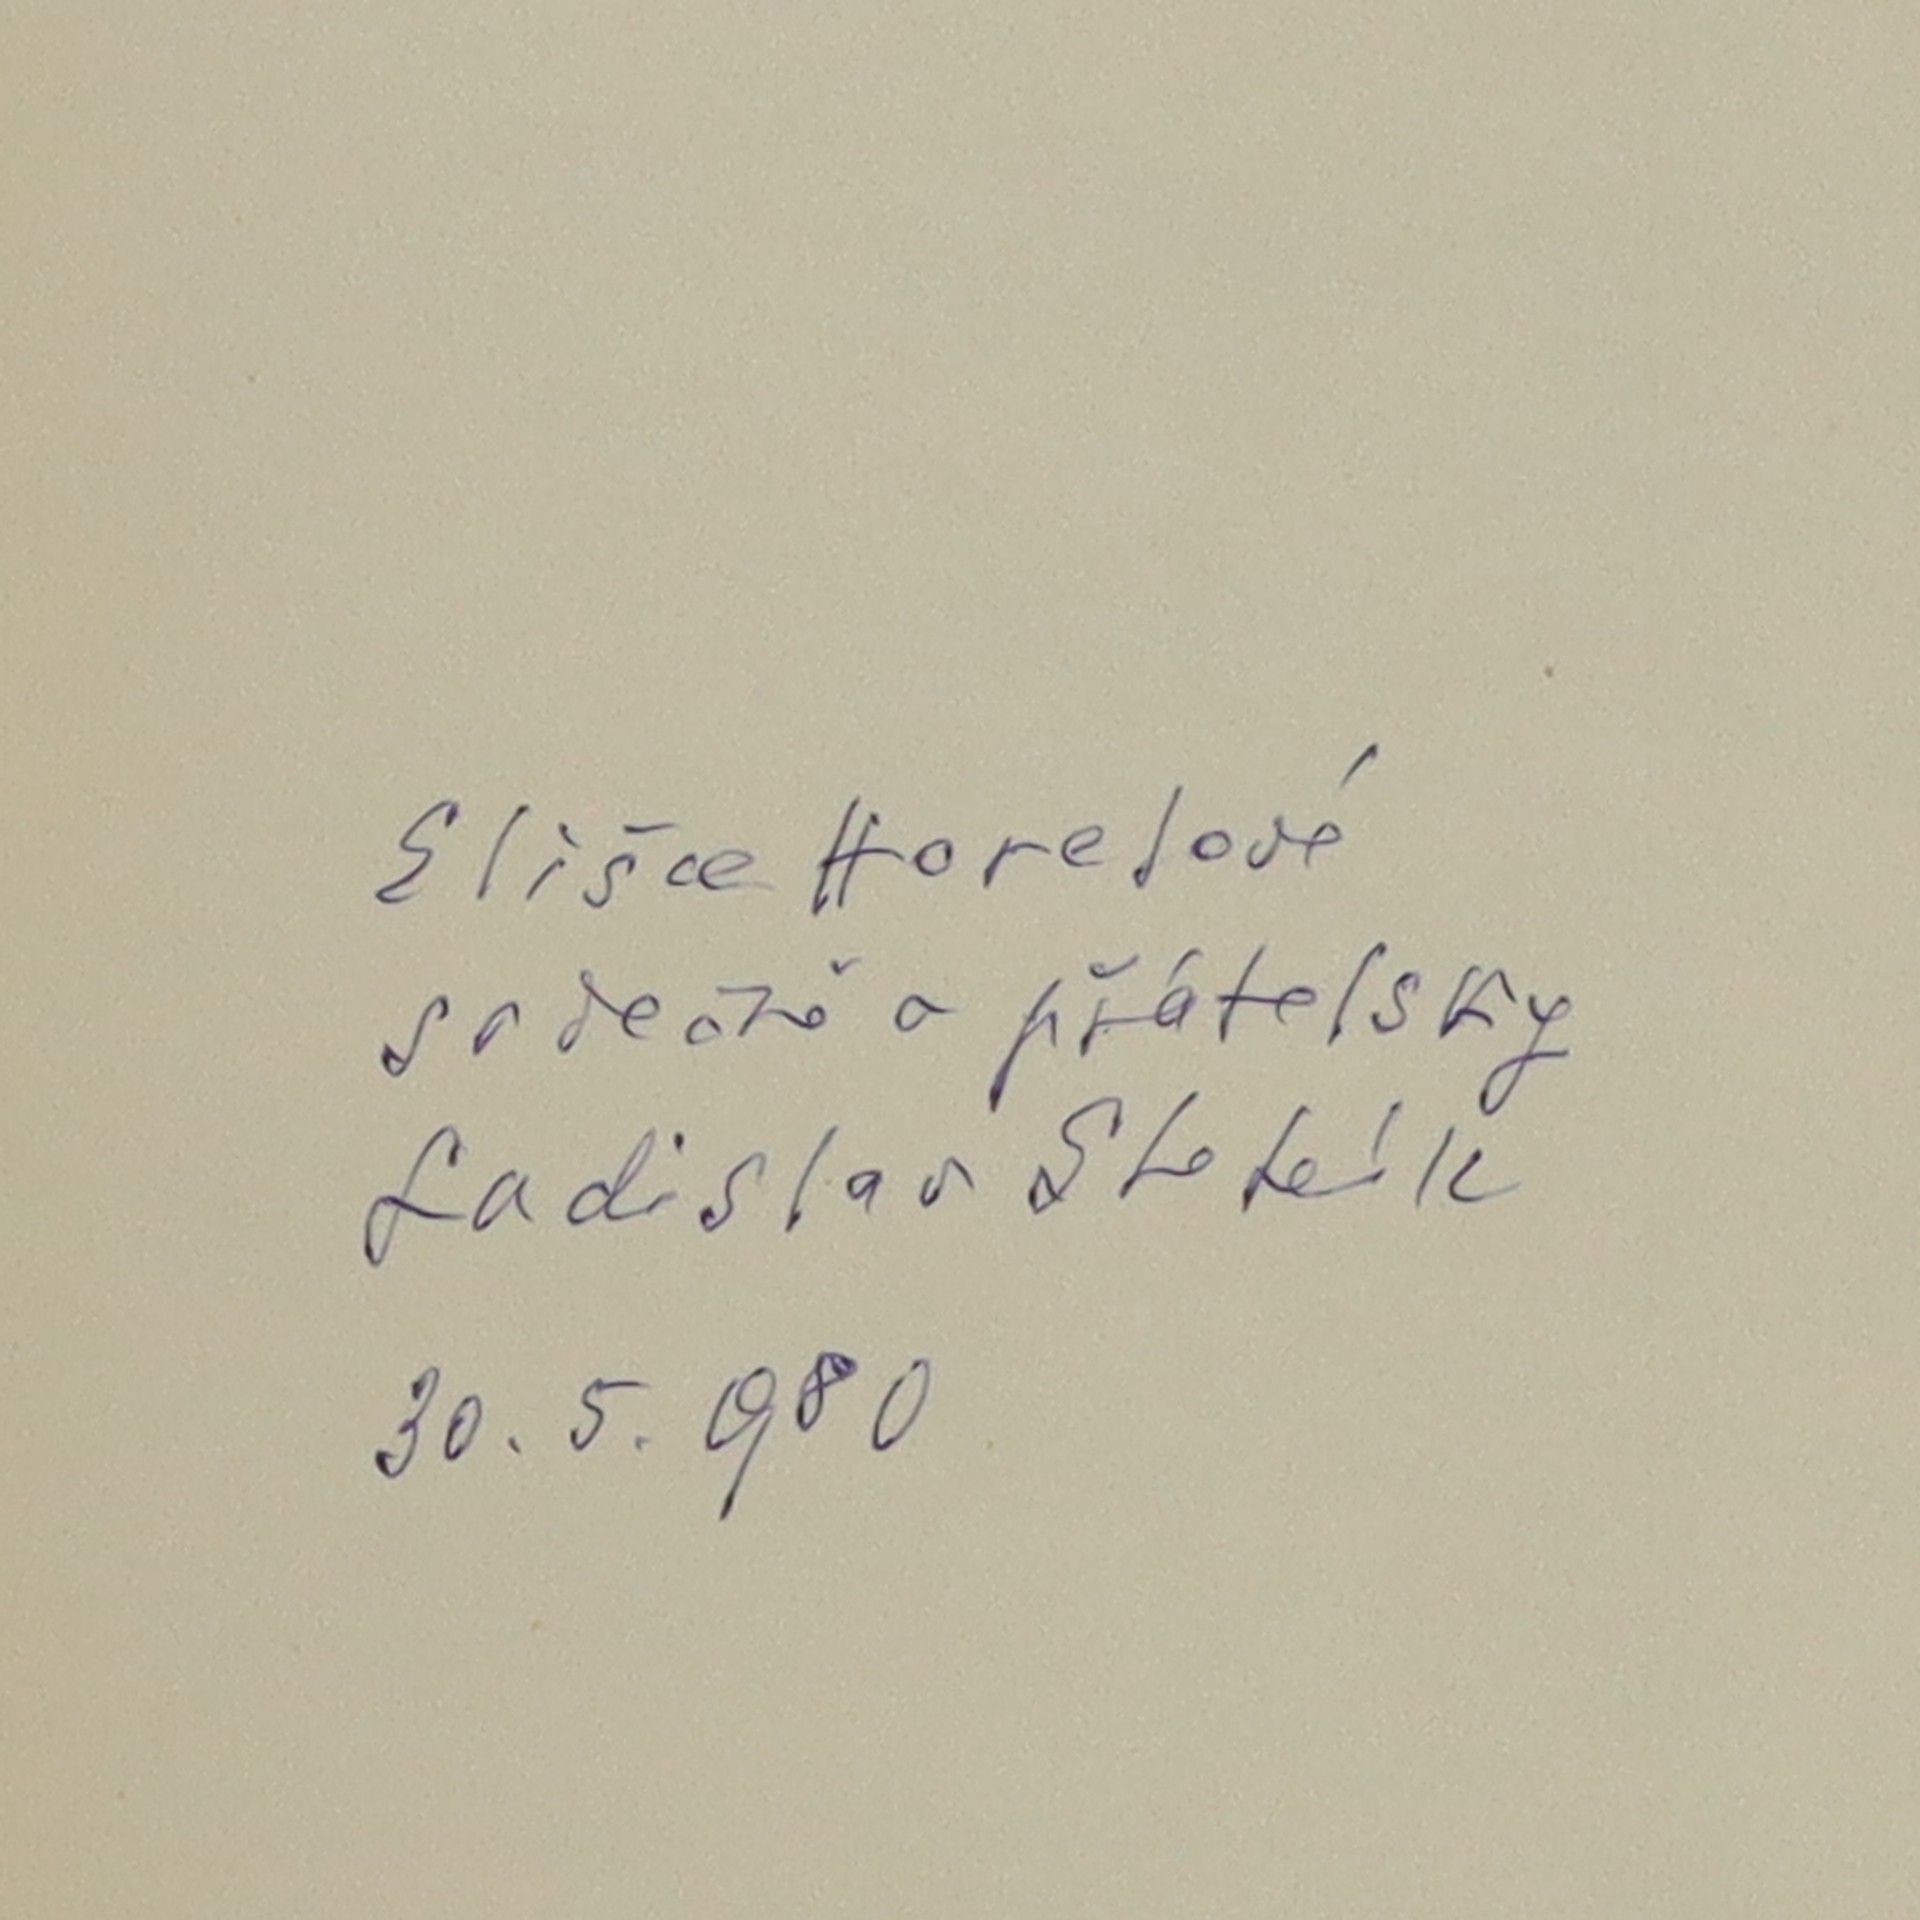 Elišce Horelové
srdečně a přátelsky
Ladislav Stehlík
30. 5. 980